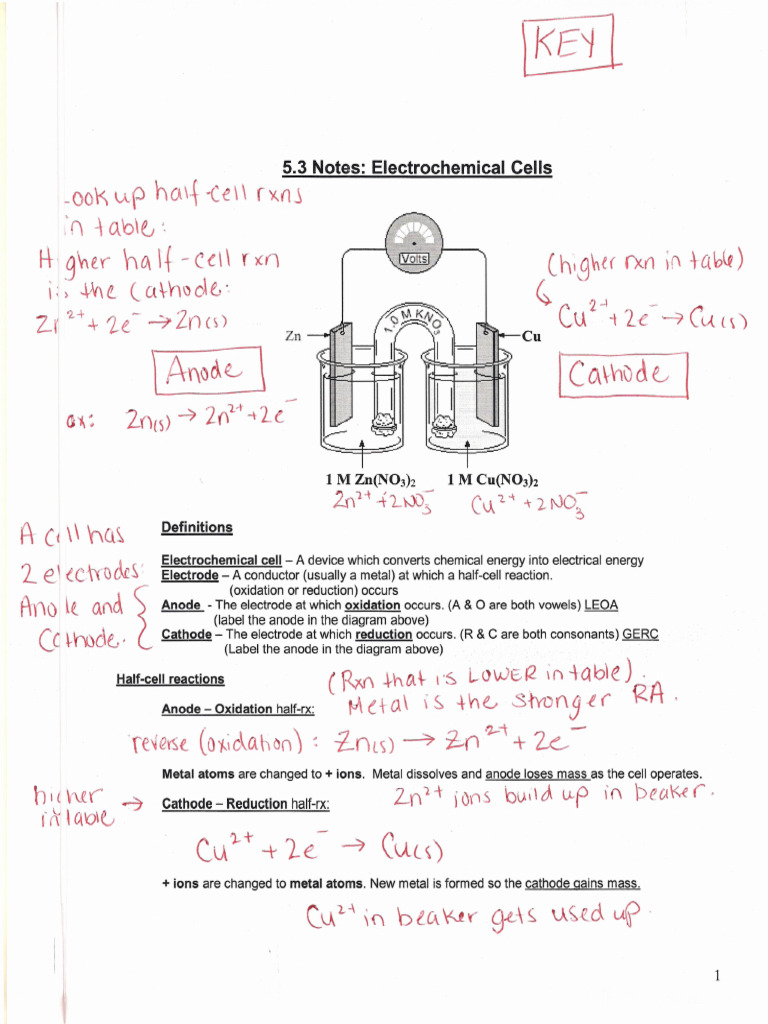 KEY
5.3 Notes: Electrochemical Cells
Look up half-cell rxns
in table:
Higher half-cell rxn
is the Cathode:
Zn²⁺ + 2e⁻ → Zn(s)
Anode
ex: Zn(s) → Zn²⁺ + 2e⁻
Volts
1.0 M KNO₃
Zn
Cu
(higher rxn in table)
Cu²⁺ + 2e⁻ → Cu(s)
Cathode
1 M Zn(NO₃)₂ 1 M Cu(NO₃)₂
Zn²⁺ + 2NO₃⁻ Cu²⁺ + 2NO₃⁻
A cell has
2 electrodes:
Anode and
Cathode.
Definitions
Electrochemical cell – A device which converts chemical energy into electrical energy
Electrode – A conductor (usually a metal) at which a half-cell reaction.
(oxidation or reduction) occurs
Anode - The electrode at which oxidation occurs. (A & O are both vowels) LEOA
(label the anode in the diagram above)
Cathode – The electrode at which reduction occurs. (R & C are both consonants) GERC
(Label the anode in the diagram above)
Half-cell reactions
(Rxn that is LOWER in table).
Metal is the stronger RA.
Anode – Oxidation half-rx:
reverse (oxidation): Zn(s) → Zn²⁺ + 2e⁻
Metal atoms are changed to + ions. Metal dissolves and anode loses mass as the cell operates.
Zn²⁺ ions build up in beaker.
higher
in table →
Cathode – Reduction half-rx:
Cu²⁺ + 2e⁻ → Cu(s)
+ ions are changed to metal atoms. New metal is formed so the cathode gains mass.
Cu²⁺ in beaker gets used up.
1